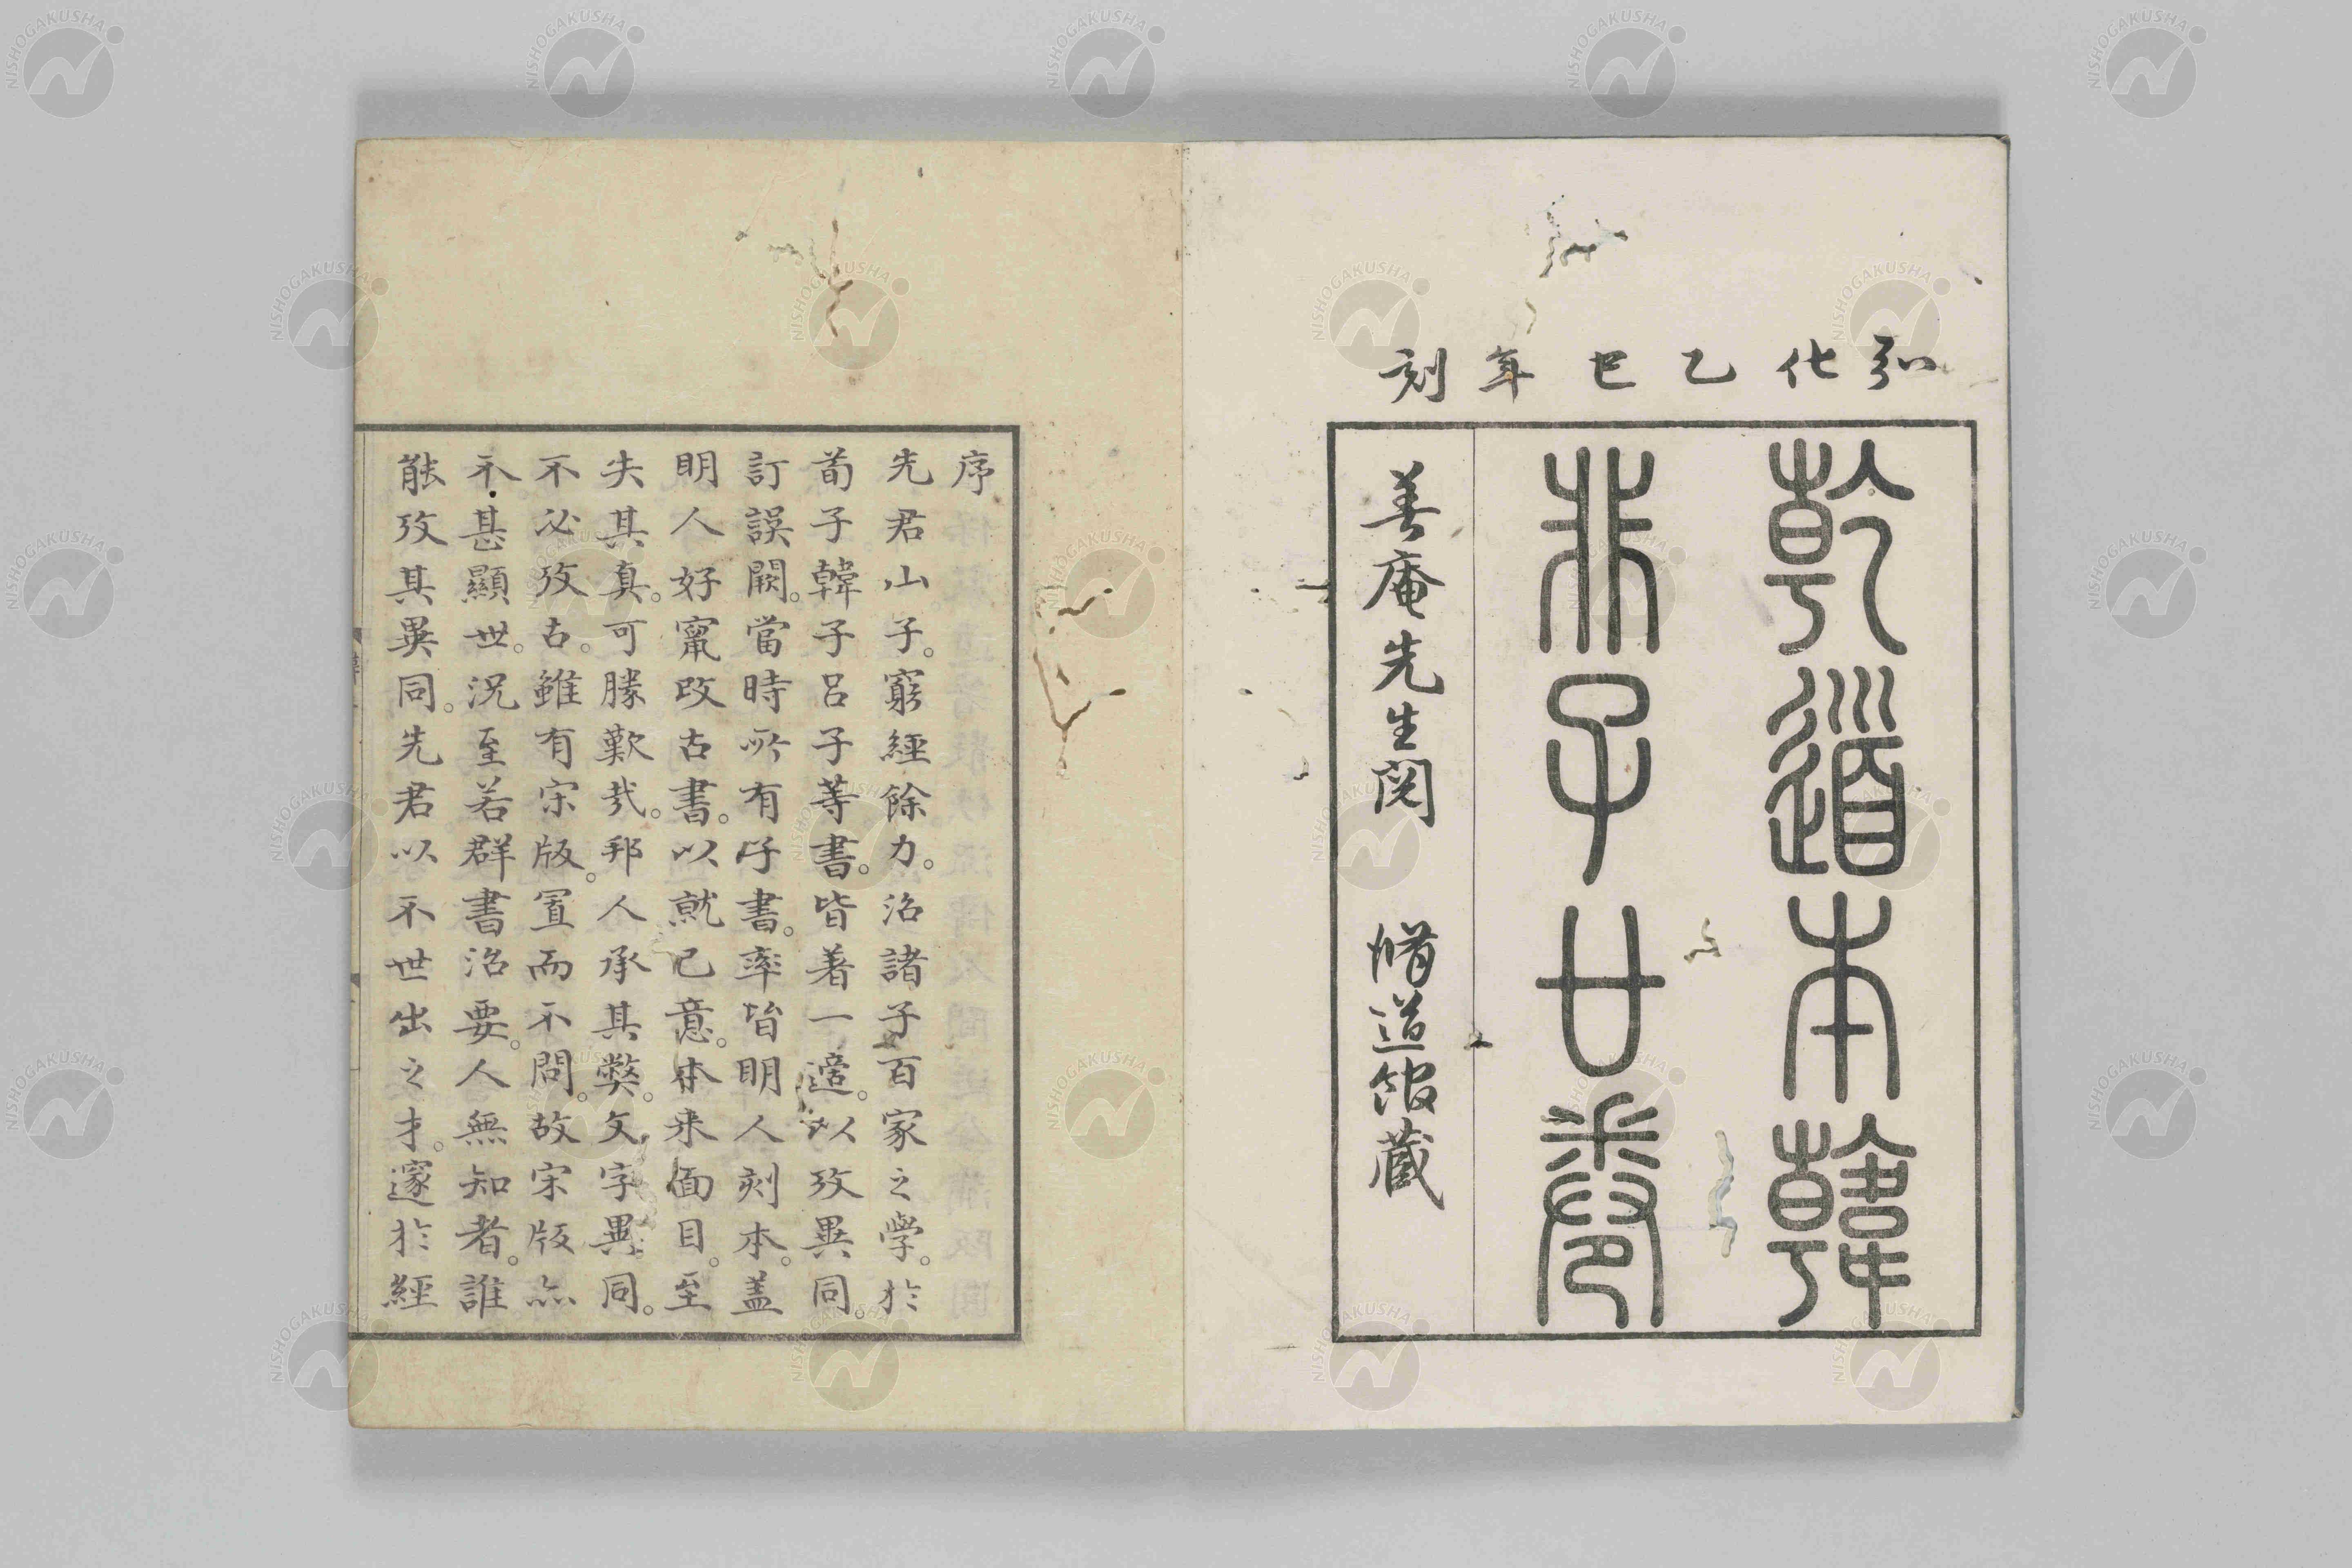 弘化乙巳年刻
乾道本韓
非子廿卷
善庵先生閲　脩道館藏
序
先君山子。窮經餘力。治諸子百家之學。於
荀子韓子呂子等書。皆著一適。以攷異同。
訂誤闕。當時所有子書。率皆明人刻本。蓋
明人好竄改古書。以就己意。本来面目。至
失其真。可勝歎哉。邦人承其弊。文字異同。
不必攷古。雖有宋版。置而不問。故宋版亦
不甚顯世。況至若群書治要。人無知者。誰
能攷其異同。先君以不世出之才。邃於經
NISHOGAKUSHA